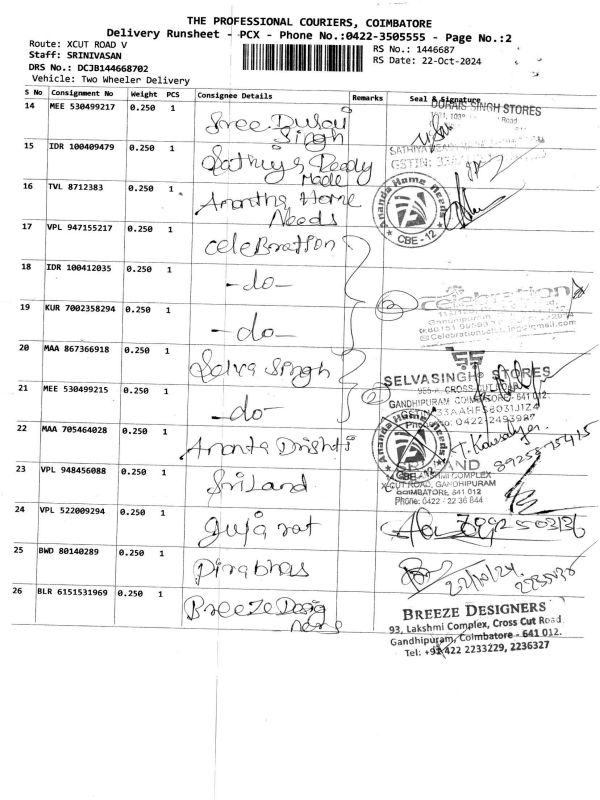 THE PROFESSIONAL COURIERS, COIMBATORE
Delivery Runsheet - PCX - Phone No.:0422-3505555 - Page No.:2
Route: XCUT ROAD V
RS No.: 1446687
Staff: SRINIVASAN
RS Date: 22-Oct-2024
DRS No.: DCJB144668702
Vehicle: Two Wheeler Delivery
S No Consignment No Weight PCS Consignee Details Remarks Seal & Signature
14 MEE 530499217 0.250 1 Sree Durai
Singh
SINGH STORES
15 IDR 100409479 0.250 1 Sathiya Ready
Made
SATHIYA
GSTIN: 33A
16 TVL 8712383 0.250 1 Anantha Home
Needs
Ananda Home Needs
CBE - 12
17 VPL 947155217 0.250 1 Celebration
18 IDR 100412035 0.250 1 -do-
Celebration
19 KUR 7002358294 0.250 1 -do-
20 MAA 867366918 0.250 1 Selva Singh
SS
SELVASINGH STORES
21 MEE 530499215 0.250 1 -do-
CROSS CUT ROAD
GANDHIPURAM COIMBATORE- 641 012.
22 MAA 705464028 0.250 1 Ananta Drishti
Ananda Home Needs
CBE - 12
23 VPL 948456088 0.250 1 Sriland
SRILAND
COMPLEX
X-CUT ROAD, GANDHIPURAM
COIMBATORE 641 012
Phone: 0422 - 22 36 844
24 VPL 522009294 0.250 1 Gujarat
25 BWD 80140289 0.250 1 Pirabhas
22/10/24
26 BLR 6151531969 0.250 1 Breeze Desig
ners
BREEZE DESIGNERS
93, Lakshmi Complex, Cross Cut Road
Gandhipuram, Coimbatore - 641 012.
Tel: +91 422 2233229, 2236327